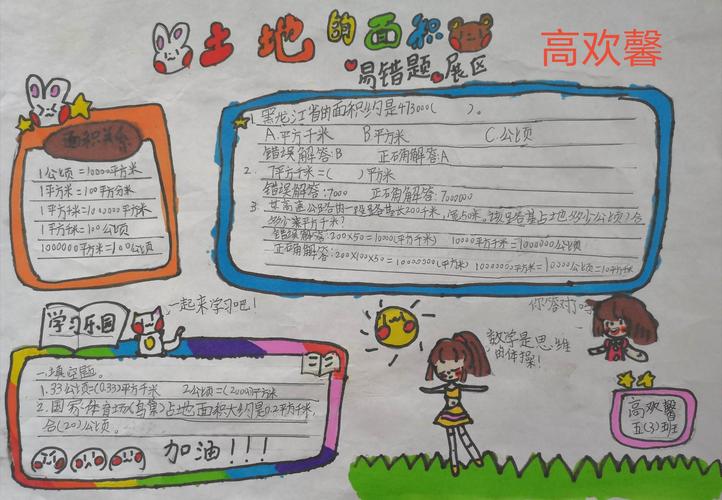 土地的面积
易错题展区
高欢馨
面积关系
1公顷=10000平方米
1平方米=100平方分米
1平方千米=1000000平方米
1平方千米=100公顷
1000000平方米=100公顷
1. 黑龙江省由面积约是473000( )。
A.平方千米 B.平方米 C.公顷
错误解答:B 正确解答:A
2. 7平方千米=( )平方米
错误解答:7000 正确解答:7000000
3. 某高速公路由一段路基长200千米,宽50米。该段路基占地多少公顷?合
多少平方千米?
错误解答:200×50=10000(平方千米) 10000平方千米=1000000公顷
正确解答:
学习乐园
一起来学习吧!
一.填空题。
1. 33公顷=(0.33)平方千米 2公顷=(20000)平方米
2. 国家体育场(鸟巢)占地面积大约是0.2平方千米,
合(20)公顷。
加油!!!
数学是思维
由体操!
你答对了吗
高欢馨
五(3)班